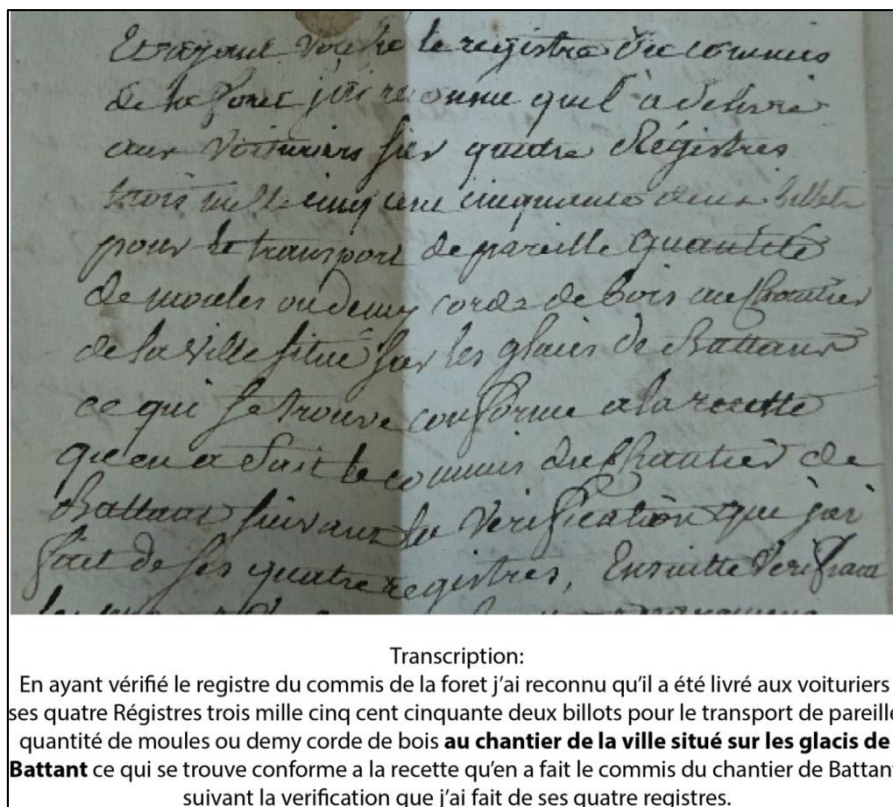 Et ayant vérifié le registre du commis
de la foret j'ai reconnue quil a delivré
aux voituriers sur quatre Régistres
trois mille cinq cent cinquante deux billets
pour le transport de pareille quantité
de moules ou demy corde de bois au Chantier
de la ville situé sur les glacis de Battant
ce qui se trouve conforme a la recette
qu'en a fait le commis du Chantier de
Battant suivant la verification que j'ai
fait de ses quatre registres, Ensuitte Verifiant
Transcription:
En ayant vérifié le registre du commis de la foret j'ai reconnu qu'il a été livré aux voituriers
ses quatre Régistres trois mille cinq cent cinquante deux billots pour le transport de pareille
quantité de moules ou demy corde de bois au chantier de la ville situé sur les glacis de
Battant ce qui se trouve conforme a la recette qu'en a fait le commis du chantier de Battant
suivant la verification que j'ai fait de ses quatre registres.